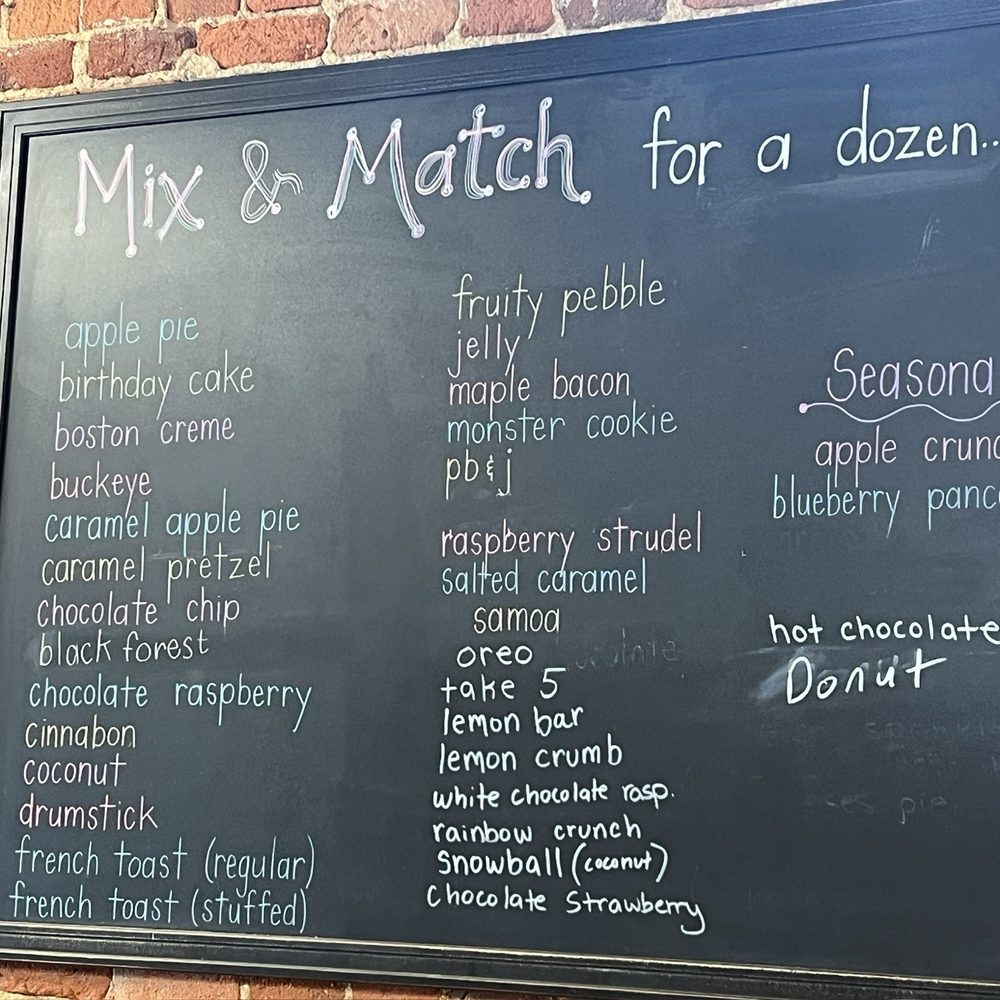 Mix & Match for a dozen..
apple pie
birthday cake
boston creme
buckeye
caramel apple pie
caramel pretzel
chocolate chip
black forest
chocolate raspberry
cinnabon
coconut
drumstick
french toast (regular)
french toast (stuffed)
fruity pebble
jelly
maple bacon
monster cookie
pb&j
raspberry strudel
salted caramel
samoa
oreo
take 5
lemon bar
lemon crumb
white chocolate rasp.
rainbow crunch
snowball (coconut)
Chocolate Strawberry
Seasona
apple crunc
blueberry panc
hot chocolate
Donut